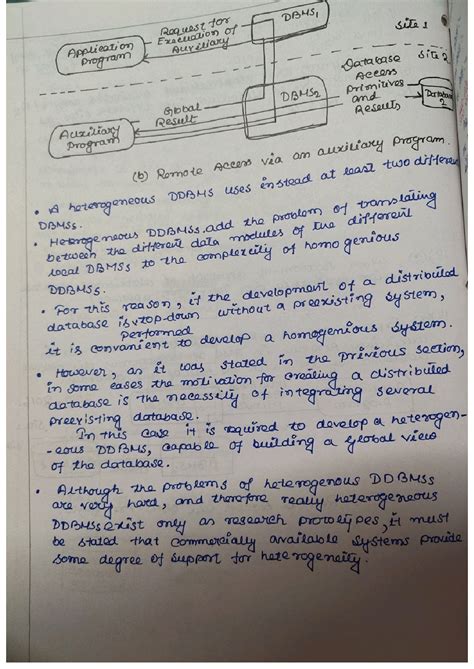 Request for
Execution of
Auxiliary
DBMS1
Site 1
Application
Program
Site 2
Database
Access
Primitives
and
Results
DBMS2
Database
2
Global
Result
Auxiliary
Program
(b) Remote Access via an auxiliary program.
• A heterogeneous DDBMS uses instead at least two different
DBMSs.
• Heterogeneous DDBMSs add the problem of translating
between the different data modules of the different
local DBMSs to the complexity of homogenious
DDBMSs.
• For this reason, if the development of a distributed
database is top-down without a preexisting system,
performed
it is convenient to develop a homogenious system.
• However, as it was stated in the previous section,
in some cases the motivation for creating a distributed
database is the necessity of integrating several
preexisting database.
In this case it is required to develop a heterogen-
-eous DDBMS, capable of building a global view
of the database.
• Although the problems of heterogenous DDBMSs
are very hard, and therefore really heterogeneous
DDBMSs exist only as research prototypes, it must
be stated that commercially available systems provide
some degree of support for heterogeneity.